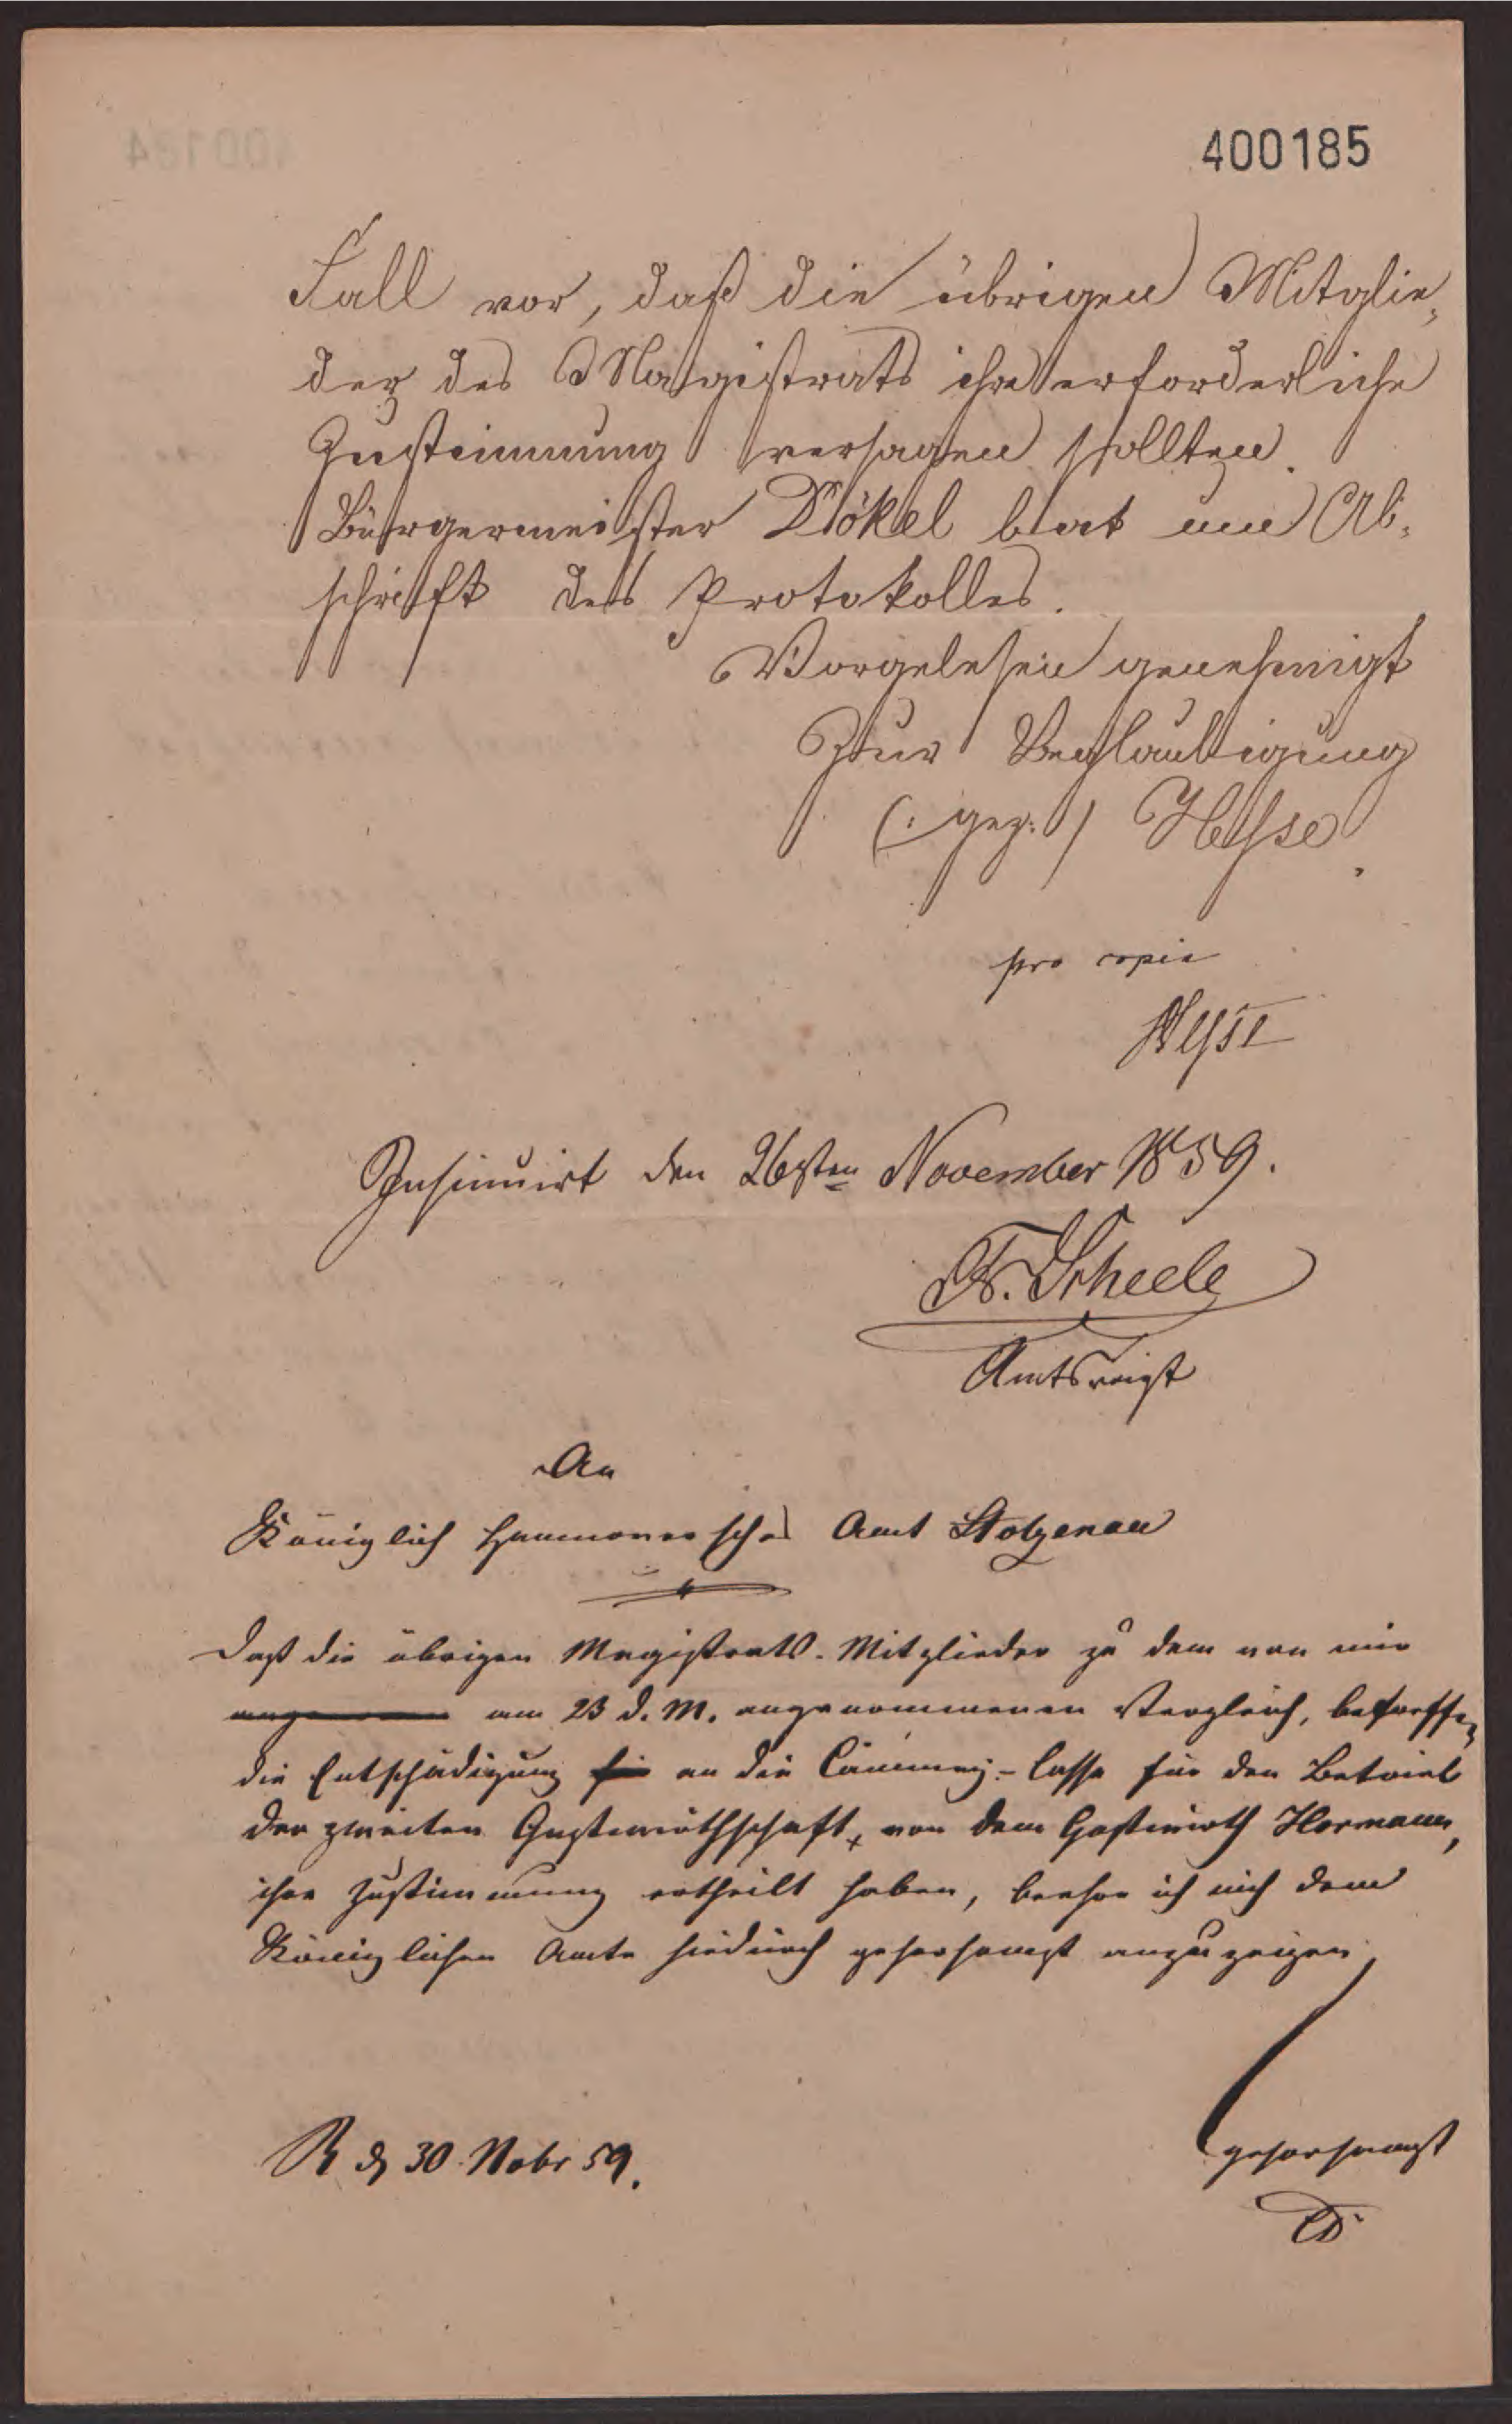 400185
Fall vor, daß die übrigen Mitglie-
der des Magistrats ihre erforderliche
Zustimmung versagen sollten.
Bürgermeister Dökel bat um Ab-
schrift des Protokolles.
Vorgelesen genehmigt
Zur Beglaubigung
(: gez:) Heyse
pro copia
Heyse
Insinuirt den 26sten November 1859.
Fr. Scheele
Amtsvoigt
An
Königlich Hannoversches Amt Stolzenau
Daß die übrigen Magistrats-Mitglieder zu dem von mir
am 23 d. M. angenommenen Vergleich, betreffend
die Entschädigung für an die Cämmerei-Casse für den Betrieb
der zweiten Gastwirthschaft, von dem Gastwirth Hormann,
ihre Zustimmung ertheilt haben, beehre ich mich dem
Königlichen Amte hiedurch gehorsamst anzuzeigen.
R d 30 Nobr 59.
gehorsamst
D